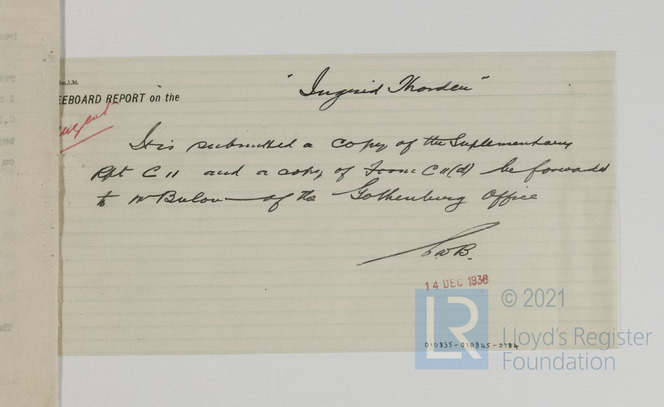 EEBOARD REPORT on the
"Ingrid Thorden"
urgent
It is submitted a copy of the Suplementary
Rpt C 11 and a copy of Form C 11(d) be forwarded
to Mr Bulow of the Gothenburg Office
14 DEC 1938
010835-010845-0184
© 2021
LR
Lloyd's Register
Foundation